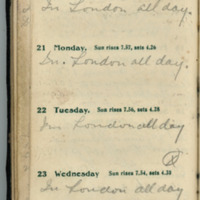 In London all day.
21 Monday. Sun rises 7.57, sets 4.26
In London all day.
22 Tuesday. Sun rises 7.56, sets 4.28
In London all day
23 Wednesday Sun rises 7.54, sets 4.28
In London all day